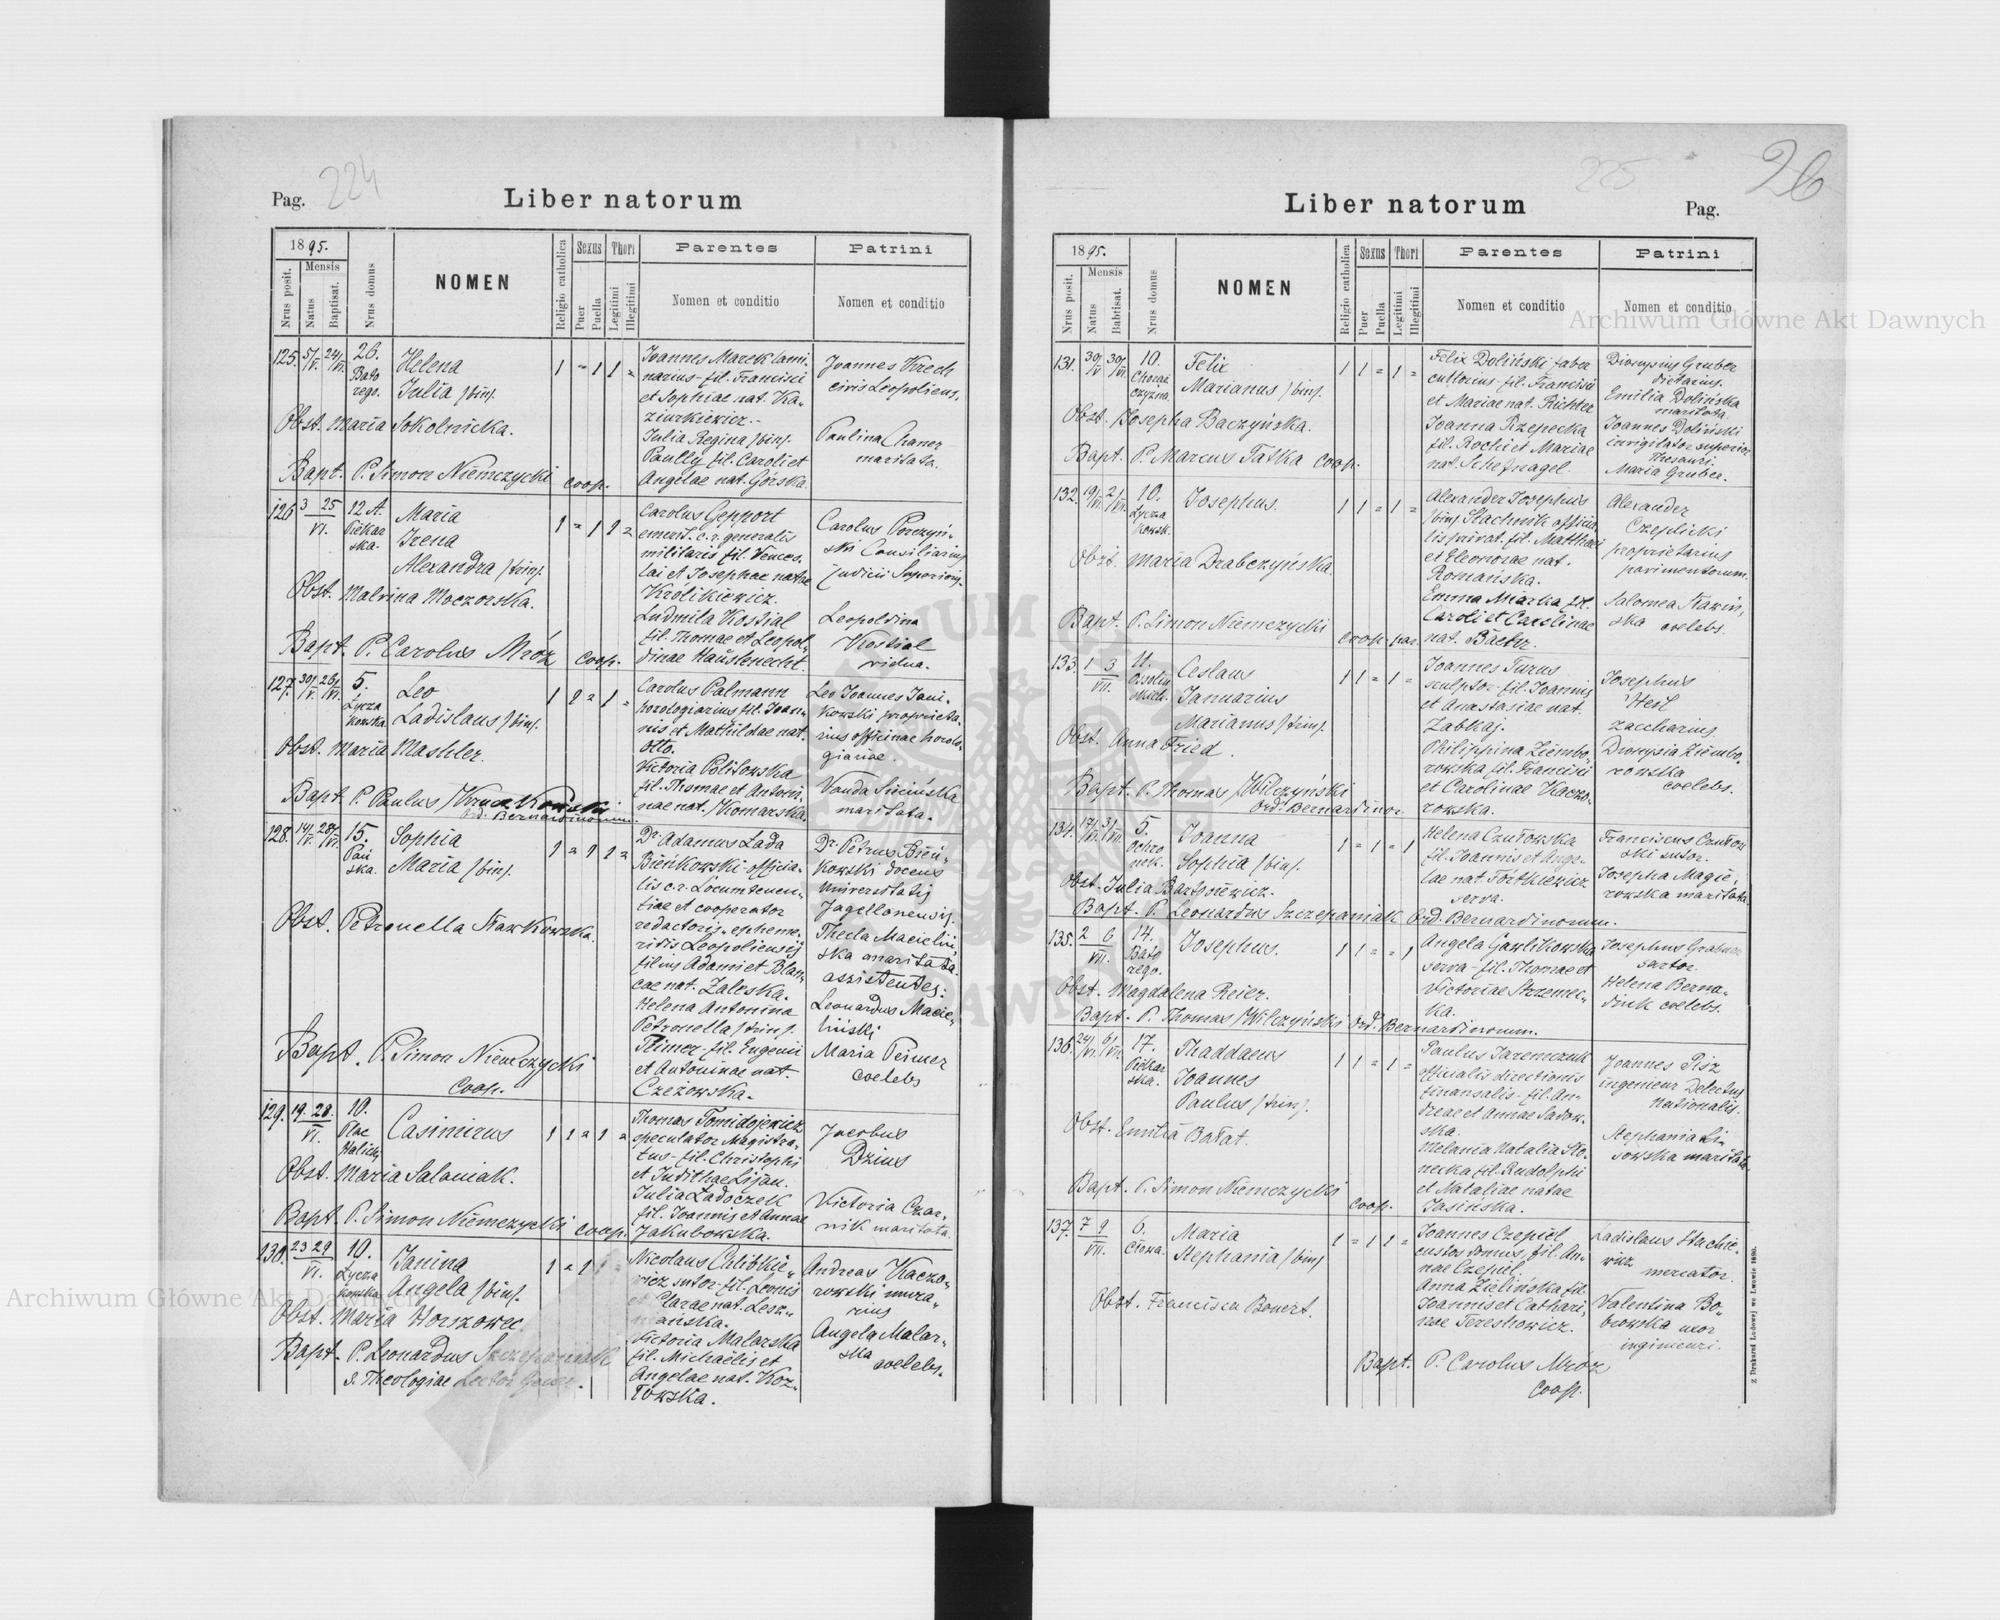 Pag. 224
Liber natorum
1895.
Nrus posit.
Mensis
Natus
Baptisat.
Nrus domus
NOMEN
Religio catholica
Sexus
Puer
Puella
Thori
Legitimi
Illegitimi
Parentes
Nomen et conditio
Patrini
Nomen et conditio
125. 5/V. 24/VI. 26. Batorego.
Helena
Julia /bin/.
1 = 1 1 =
Joannes Marek lami-
narius - fil. Francisci
et Sophiae nat. Ka-
ziurkiewicz.-
Julia Regina /bin/.
Paully fil. Caroli et
Angelae nat. Górska.
Joannes Krech
civis Leopoliens.
Paulina
maritata.
Obst. Maria Sokolnicka.
Bapt. P. Simon Niemczycki coop.
126 3 25 VI. 12 A. Piekarska.
Maria
Irena
Alexandra /trin/.
1 = 1 1 =
Carolus Gepport
emerit. c. r. generalis
militaris fil. Vences-
lai et Josephae natae
Królikiewicz.
Ludmila Kostial
fil. Thomae et Leopol-
dinae Hauslenecht.
Carolus Porczyń-
ski Consiliarius
judicii Superioris.
Leopoldina
Kostial
vidua.
Obst. Malvina Moczorska.
Bapt. P. Carolus Mróz coop.
127. 30/V. 26/VI. 5. Łyczakowska
Leo
Ladislaus /bin/.
1 1 = 1 =
Carolus Palmann
horologiarius fil. Joan-
nis et Mathildae nat.
Otto.
Victoria Politowska
fil. Thomae et Antoni-
nae nat. Komarska.
Leo Joannes Jani-
kowski proprieta-
rius officinae horolo-
giariae.
Vanda Sicińska
maritata.
Obst. Maria Mashler.
Bapt. P. Paulus
Ord. Bernardinorum.
128. 14/IV. 28/VI. 15. Pańska.
Sophia
Maria /bin/.
1 = 1 1 =
Dr. Adamus Lada
Bieńkowski - officia-
lis c. r. Locumtenen-
tiae et cooperator
redactoris - epheme-
ridis Leopoliensis
filius Adami et Blan-
cae nat. Zaleska.
Helena Antonina
Petronella /trin/.
Teimer - fil. Eugenii
et Antoninae nat.
Czeżowska.
Dr. Petrus Bień-
kowski docens
Universitatis
Jagellonensis.
Thecla Macieliń-
ska maritata.
assistentes:
Leonardus Macie-
liński
Maria Teimer
coelebs
Obst. Petronella Sławkowska.
Bapt. P. Simon Niemczycki
Coop.
129. 19. 28. VI. 10. Plac Halicki
Casimirus
1 1 = 1 =
Thomas Tomidojewicz
speculator Magistra-
tus - fil. Christophi
et Judithae Lijan.
Julia Ladoczek
fil. Joannis et Annae
Jakubowska.
Jacobus
Dzius
Victoria Czar-
nik maritata.
Obst. Maria Salaniak.
Bapt. P. Simon Niemczycki coop.
130. 23 29 VI. 10. Łyczakowska
Janina
Angela /bin/.
1 = 1 1 =
Nicolaus Chlibkie-
wicz sutor - fil. Leonis
et Clarae nat. Lesz-
Victoria Malarska
fil. Michaëlis et
Angelae nat. Koz-
łowska.
Andreas Kaczo-
rowski mura-
rius
Angela Malar-
ska coelebs.
Obst. Maria Horszowec
Bapt. P. Leonardus Szczepaniak
S. Theologiae Lector Gener.
225 26
Liber natorum
Pag.
1895.
Nrus posit.
Mensis
Natus
Babtisat.
Nrus domus
NOMEN
Religio catholica
Sexus
Puer
Puella
Thori
Legitimi
Illegitimi
Parentes
Nomen et conditio
Patrini
Nomen et conditio
131. 30/V 30/VI. 10. Chorążczyzna.
Felix
Marianus /bin/.
1 1 = 1 =
Felix Doliński faber
cultorius - fil. Francisci
et Mariae nat. Richter
Joanna Rzepecka
fil. Rochi et Mariae
nat. Schefnagel.
Dionysius Gruber
dietarius.
Emilia Dolińska
maritata.
Joannes Doliński
invigilator superior
Thesauri.
Maria Gruber.
Obst. Josepha Baczyńska.
Bapt. P. Marcus Tatka coop.
132. 19/VI. 2/VII. 10. Łyczakowsk.
Josephus.
1 1 = 1 =
Alexander Josephus
/bin/ Stachnik officia-
lis privat. fil. Matthaei
et Eleonorae nat.
Romańska.
Emma Miarka fil.
Caroli et Carolinae
nat. Bäcker.
Alexander
Czeplicki
proprietarius
pavimentorum.
Salomea Sławiń-
ska coelebs.
Obst. Maria Drabczyńska.
Bapt. P. Simon Niemczycki coop. par.
133. 1 3 VII. 11. Ossolińskich.
Ceslaus
Januarius
Marianus /trin/.
1 1 = 1 =
Joannes Turus
sculptor - fil. Joannis
et Anastasiae nat.
Zabkaj.
Philippina Ziembo-
rowska fil. Francisci
et Carolinae Kaczo-
rowska.
Josephus
Heil
zaccharius.
Dionysia Ziembo-
rowska
coelebs.
Obst. Anna Fried.
Bapt. P. Thomas Wilczyński
Ord. Bernardinor.
134. 17/VI. 3/VII. 5. Ochronek.
Joanna
Sophia /bin/.
1 = 1 = 1
Helena Czułowska
fil. Joannis et Ange-
lae nat. Fortkiewicz
serva.
Franciscus Czułow-
ski sutor.
Josepha Magie-
rowska maritata.
Obst. Julia Bartosiewicz.
Bapt. P. Leonardus Szczepaniak Ord. Bernardinorum.
135. 2 6 VII. 14. Batorego.
Josephus.
1 1 = = 1
Angela Gawlikowska
serva - fil. Thomae et
Victoriae Strzemec-
ka.
Josephus Grabner
sartor.
Helena Berna-
diuk coelebs.
Obst. Magdalena Reier.
Bapt. P. Thomas Wilczyński Ord. Bernardinorum.
136. 24/VI. 6/VII. 17. Piekarska.
Thaddaeus
Joannes
Paulus /trin/.
1 1 = 1 =
Paulus Jaremczuk
officialis directionis
finansalis - fil. An-
dreae et Annae Sadow-
ska.
Melania Natalia Ko-
necka fil. Rudolphi
et Nataliae natae
Jasińska.
Joannes Pisz
ingenieur Delectus
Nationalis.
Stephania Li-
sowska maritata.
Obst. Emilia Bałat.
Bapt. P. Simon Niemczycki coop.
137. 7 9 VII. 6. Cłowa.
Maria
Stephania /bin/
1 = 1 1 =
Joannes Czepiel
custos domus, fil. An-
nae Czepiel.
Anna Zielińska fil.
Joannis et Cathari-
nae Tereshowicz.
Ladislaus Stachie-
wicz mercator.
Valentina Bo-
browska uxor
ingenieuri.
Obst. Francisca Bonert.
Bapt. P. Carolus Mróz
coop.
Z Drukarni Ludowej we Lwowie 1880.
Archiwum Główne Akt Dawnych
Archiwum Główne Akt Dawnych